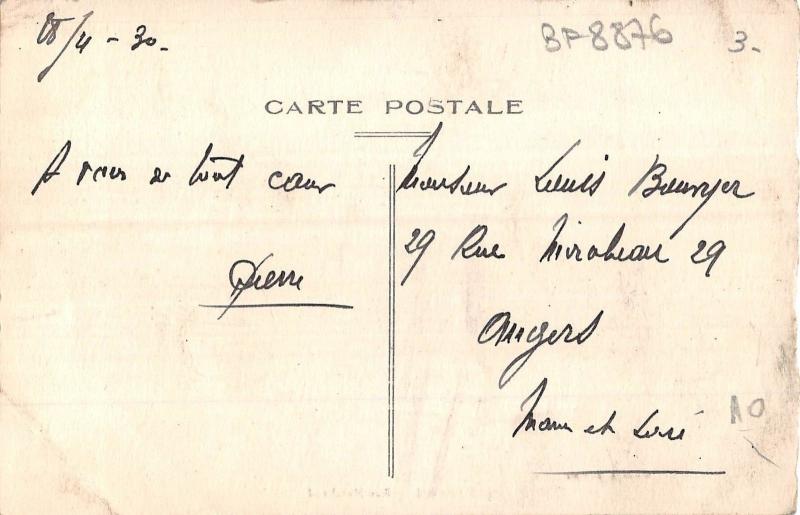 /4-30-
BF8876
3-
CARTE POSTALE
A vous de tout cœur
Pierre
Monsieur Louis
29 Rue Mirabeau 29
Angers
Maine et Loire